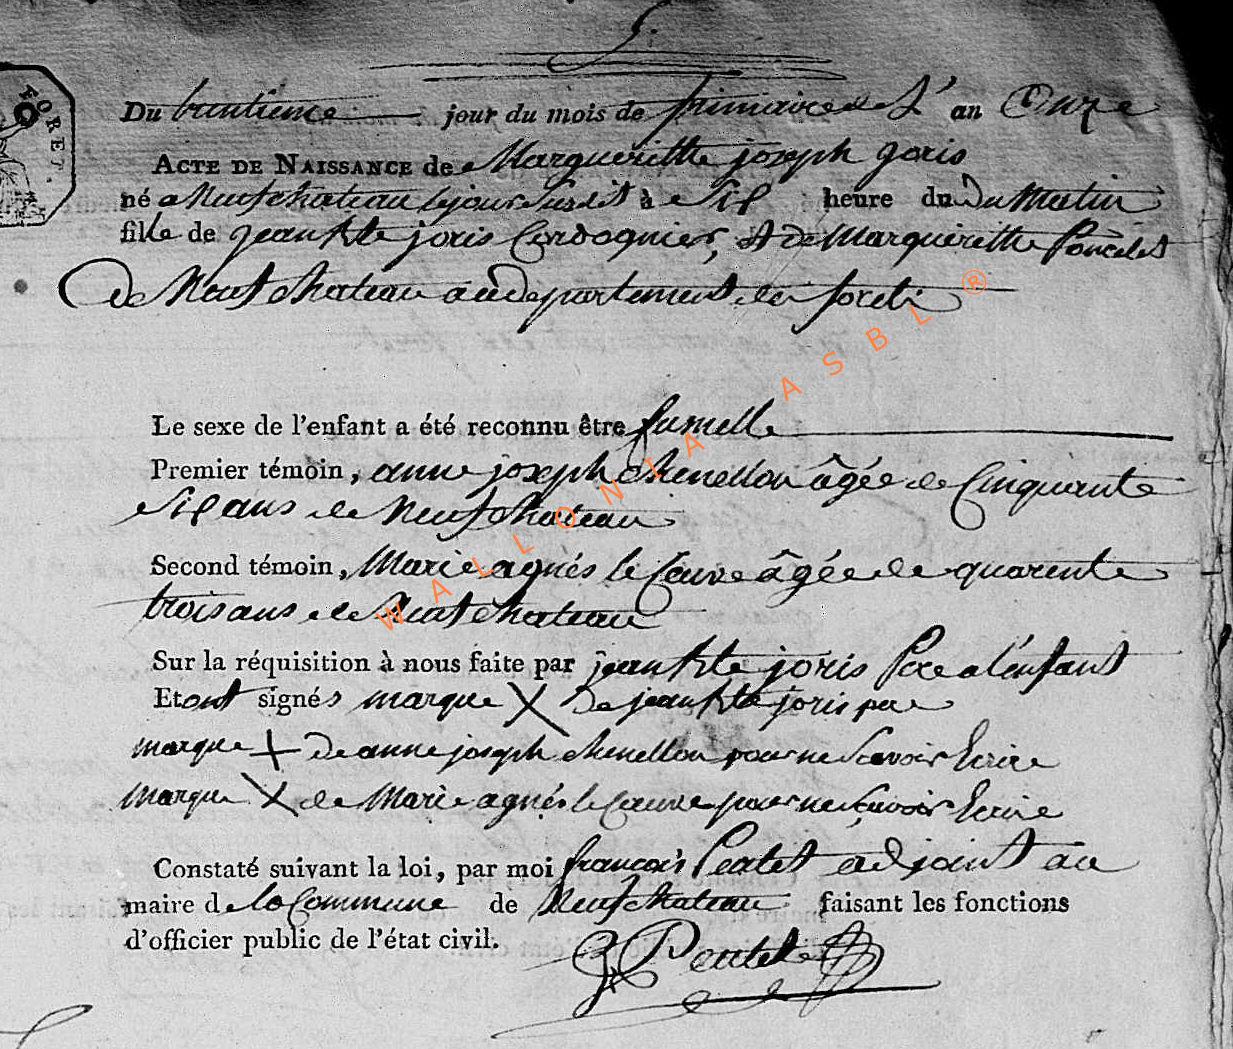 5.
FORET.
Du huitieme jour du mois de frimaire de L' an Onze
ACTE DE NAISSANCE de Margueritte joseph joris
né a Neufchateau le jour susdit à Six heure du Du Matin
fille de jean Bte joris Cordognier, et de Margueritte Poncelet
de Neufchateau au departement des forets
Le sexe de l'enfant a été reconnu être fumelle
Premier témoin, anne joseph chenellon âgée de Cinquante
Six ans de Neufchateau
Second témoin, Marie agnés le Couve âgée de quarente
trois ans de Neufchateau
Sur la réquisition à nous faite par jean Bte joris Pere a l'enfant
Et ont signés marque X de jean Bte joris pere
marque + de anne joseph chenellon pour ne Scavoir Ecrire
Marque X de Marie agnés le Couve pour ne Scavoir Ecrire
Constaté suivant la loi, par moi francois Peatet adjoint au
maire de la Commune de Neufchateau faisant les fonctions
d'officier public de l'état civil.
WALLONIA ASBL ®